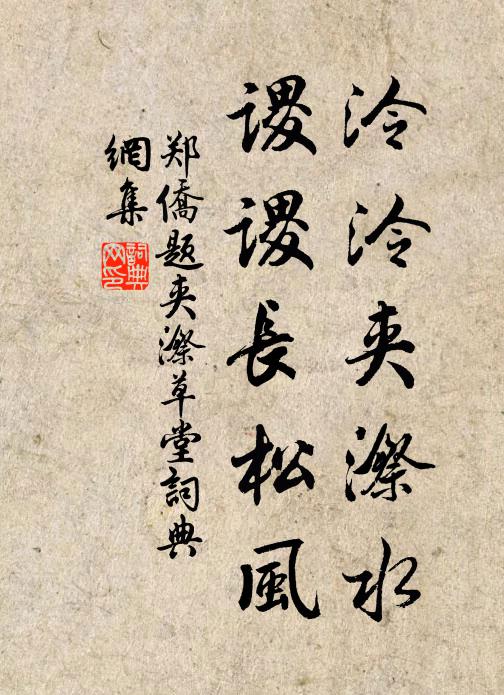 泠泠夾漈水
謖謖長松風
郑僑題夹漈草堂詞典
網集
詞典網印